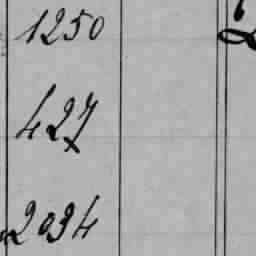 1250
427
2094